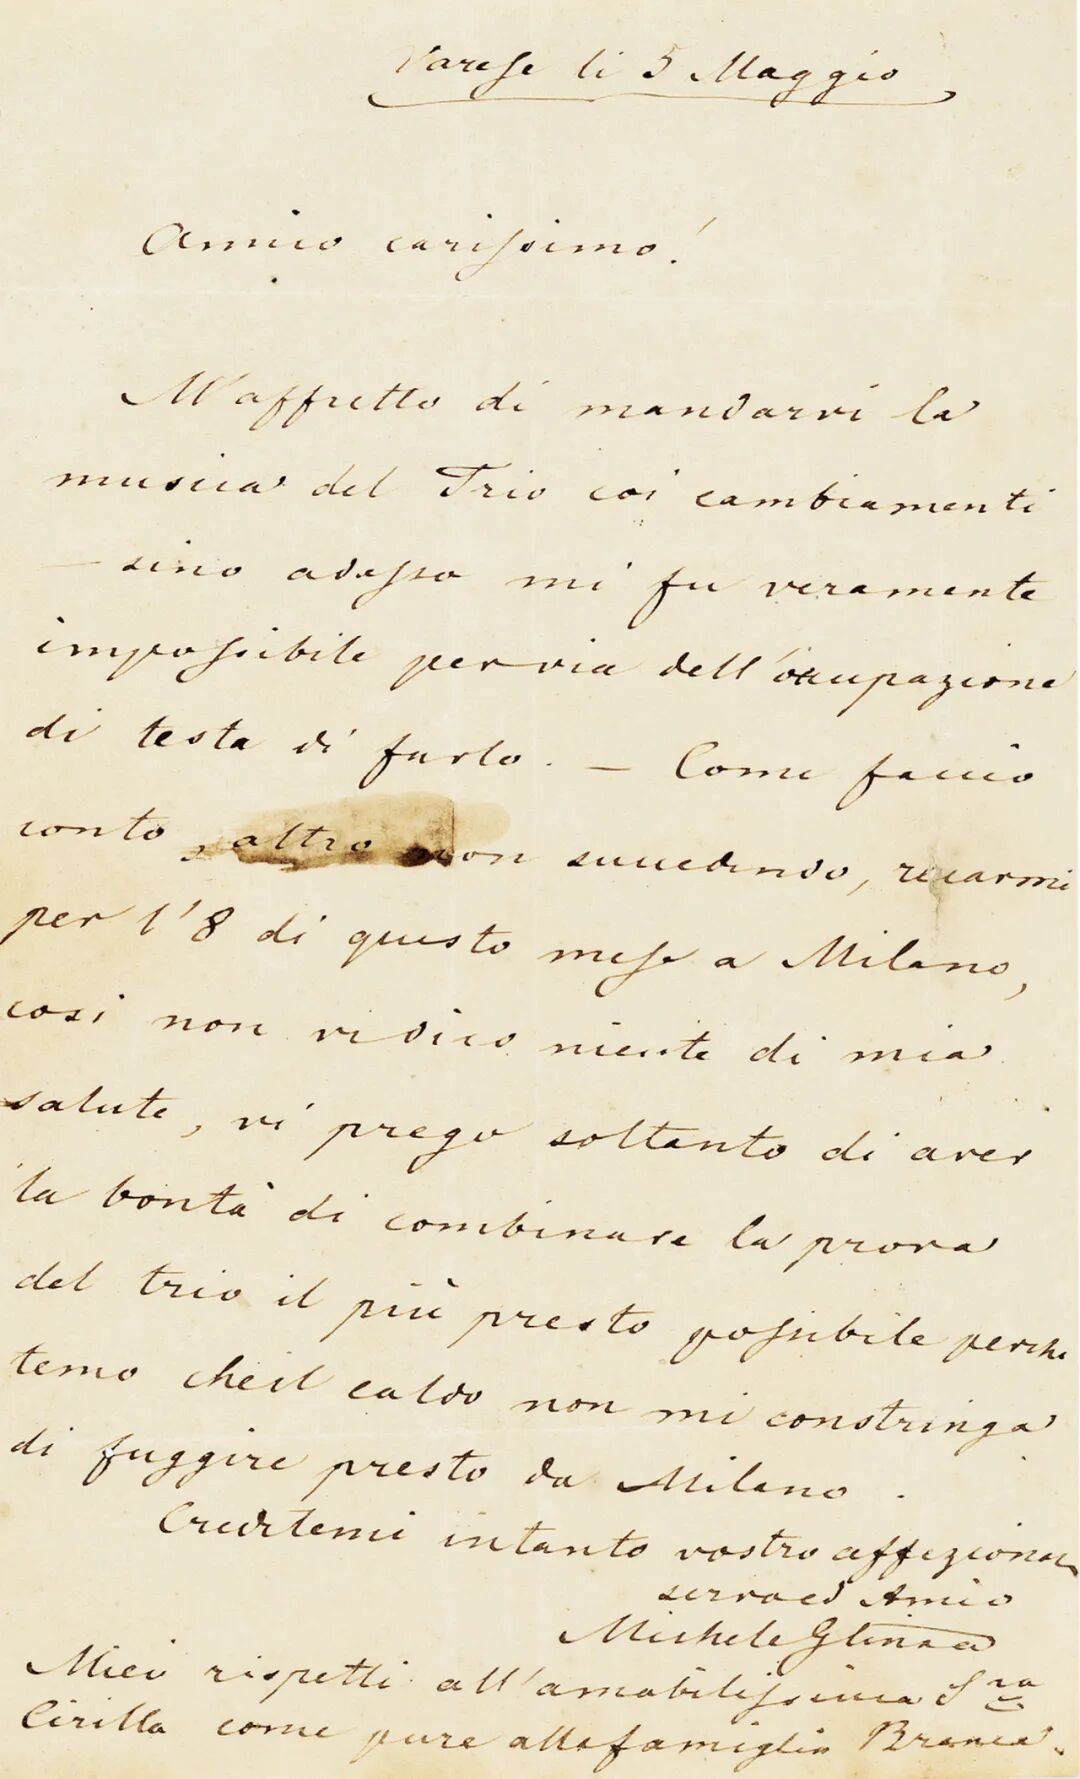 Varese li 5 Maggio
Amico carissimo!
M'affretto di mandarvi la
musica del Trio coi cambiamenti
– sino adesso mi fu veramente
impossibile per via dell'occupazione
di testa di farlo. – Come faccio
conto, altro non succedendo, recarmi
per l'8 di questo mese a Milano,
cosi non vi dico niente di mia
salute, vi prego soltanto di aver
la bontà di combinare la prova
del trio il più presto possibile perche
temo che il caldo non mi constringa
di fuggire presto da Milano.
Credetemi intanto vostro affezionat
servo ed Amico
Michele Glinka
Miei rispetti all'amabilissima Sra
Cirilla come pure alla famiglia Branca.